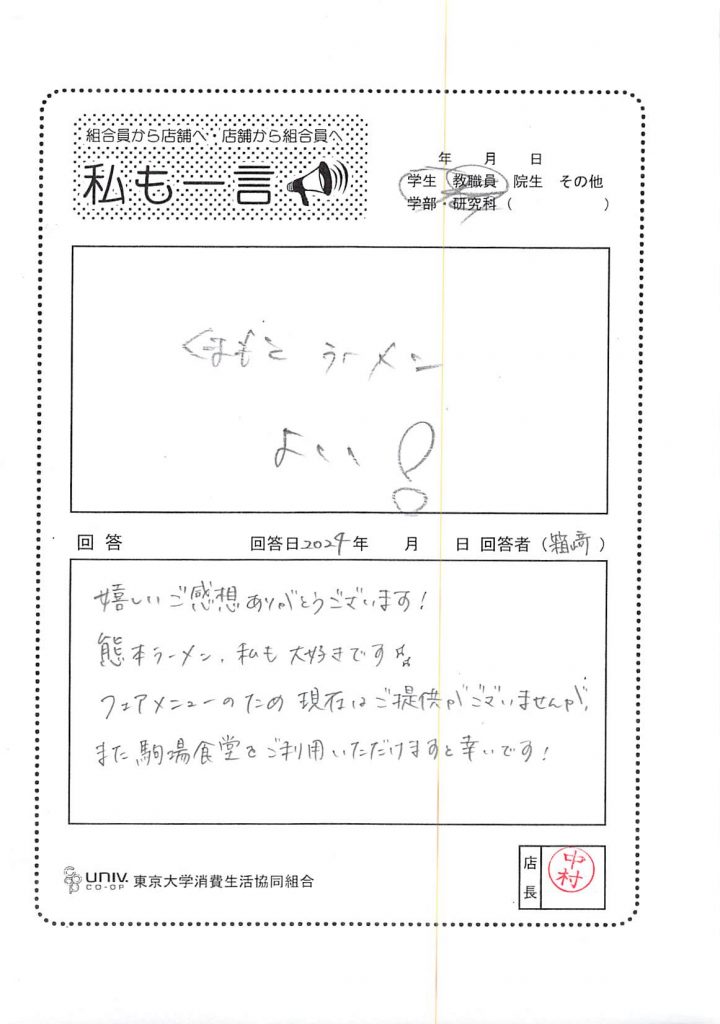 組合員から店舗へ・店舗から組合員へ
私も一言
年 月 日
学生 教職員 院生 その他
学部・研究科( )
くまもと ラーメン
よい!
回答 回答日2024年 月 日 回答者(箱﨑)
嬉しいご感想ありがとうございます!
熊本ラーメン、私も大好きです
フェアメニューのため現在はご提供がございませんが、
また駒場食堂をご利用いただけますと幸いです!
UNIV.
CO-OP
東京大学消費生活協同組合
店長
中村